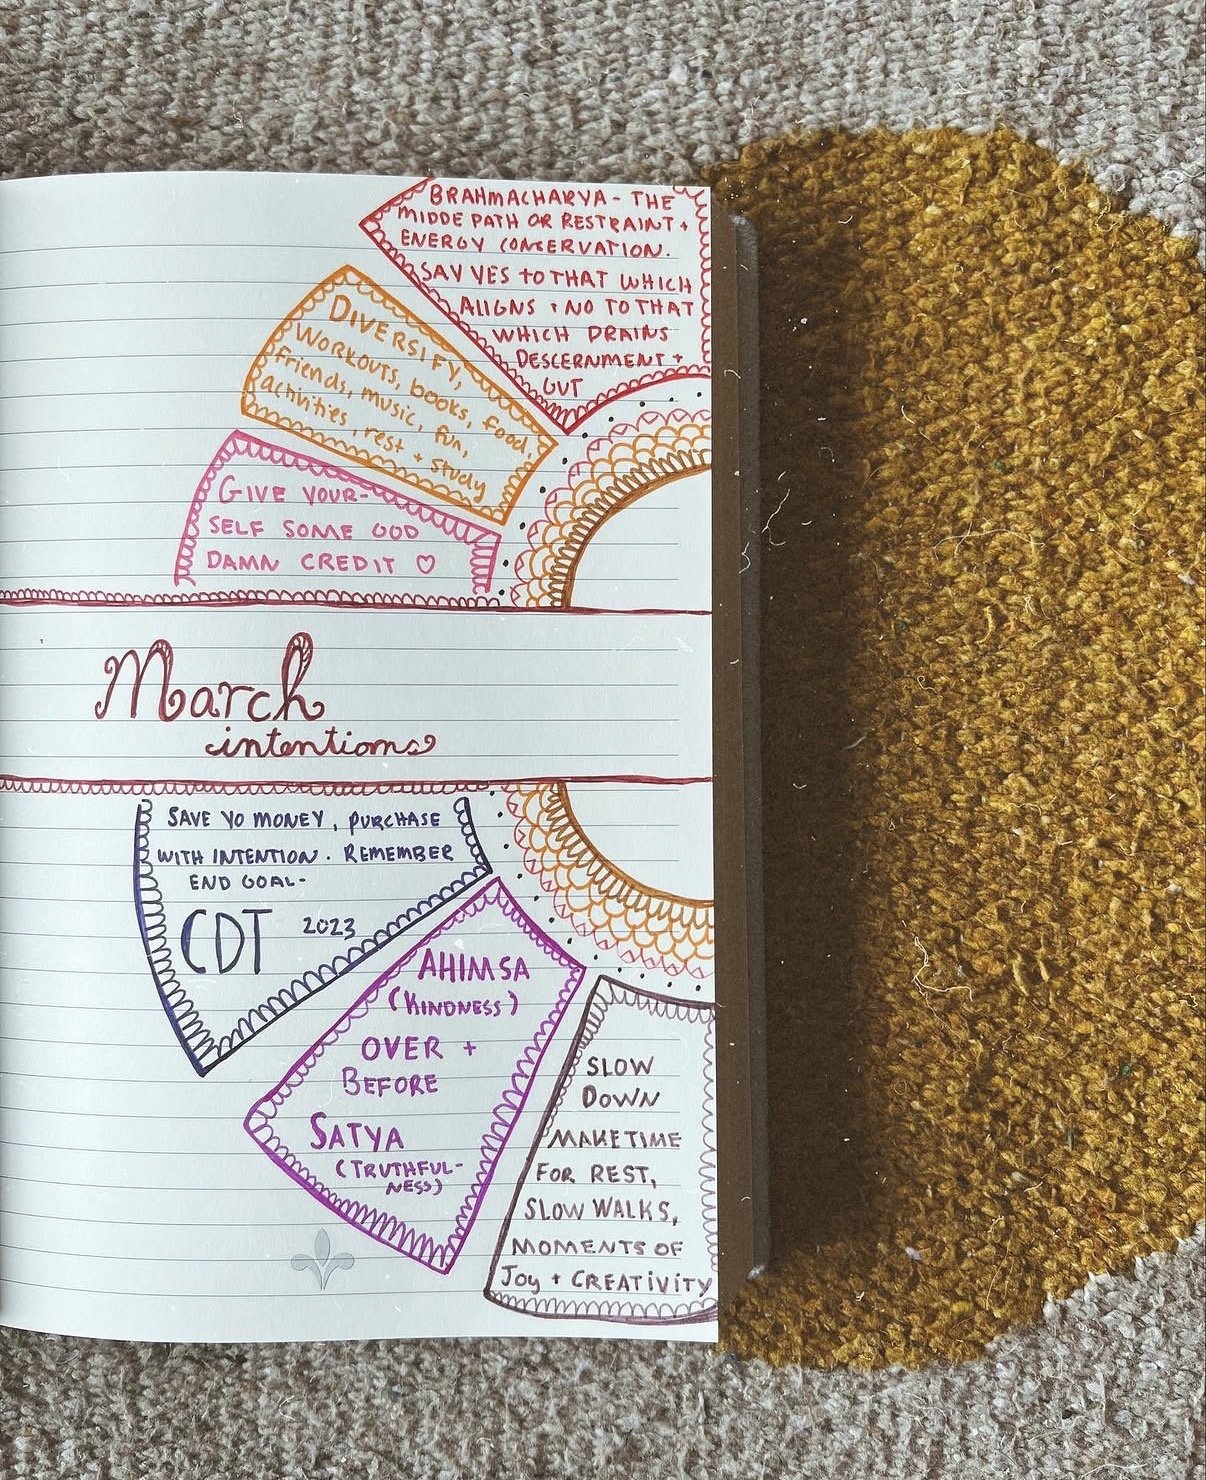 BRAHMACHARYA - THE
MIDDE PATH OR RESTRAINT +
ENERGY CONSERVATION.
SAY YES TO THAT WHICH
ALIGNS + NO TO THAT
WHICH DRAINS
DESCERNMENT +
GUT
DIVERSIFY,
WORKOUTS, books, food,
friends, music, fun,
activities, rest + study
GIVE YOUR-
SELF SOME GOD
DAMN CREDIT ♡
March
intentions
SAVE YO MONEY, PURCHASE
WITH INTENTION. REMEMBER
END GOAL-
CDT 2023
AHIMSA
(KINDNESS)
OVER +
BEFORE
SATYA
(TRUTHFUL-
NESS)
SLOW
DOWN
MAKE TIME
FOR REST,
SLOW WALKS,
MOMENTS OF
Joy + CREATIVITY